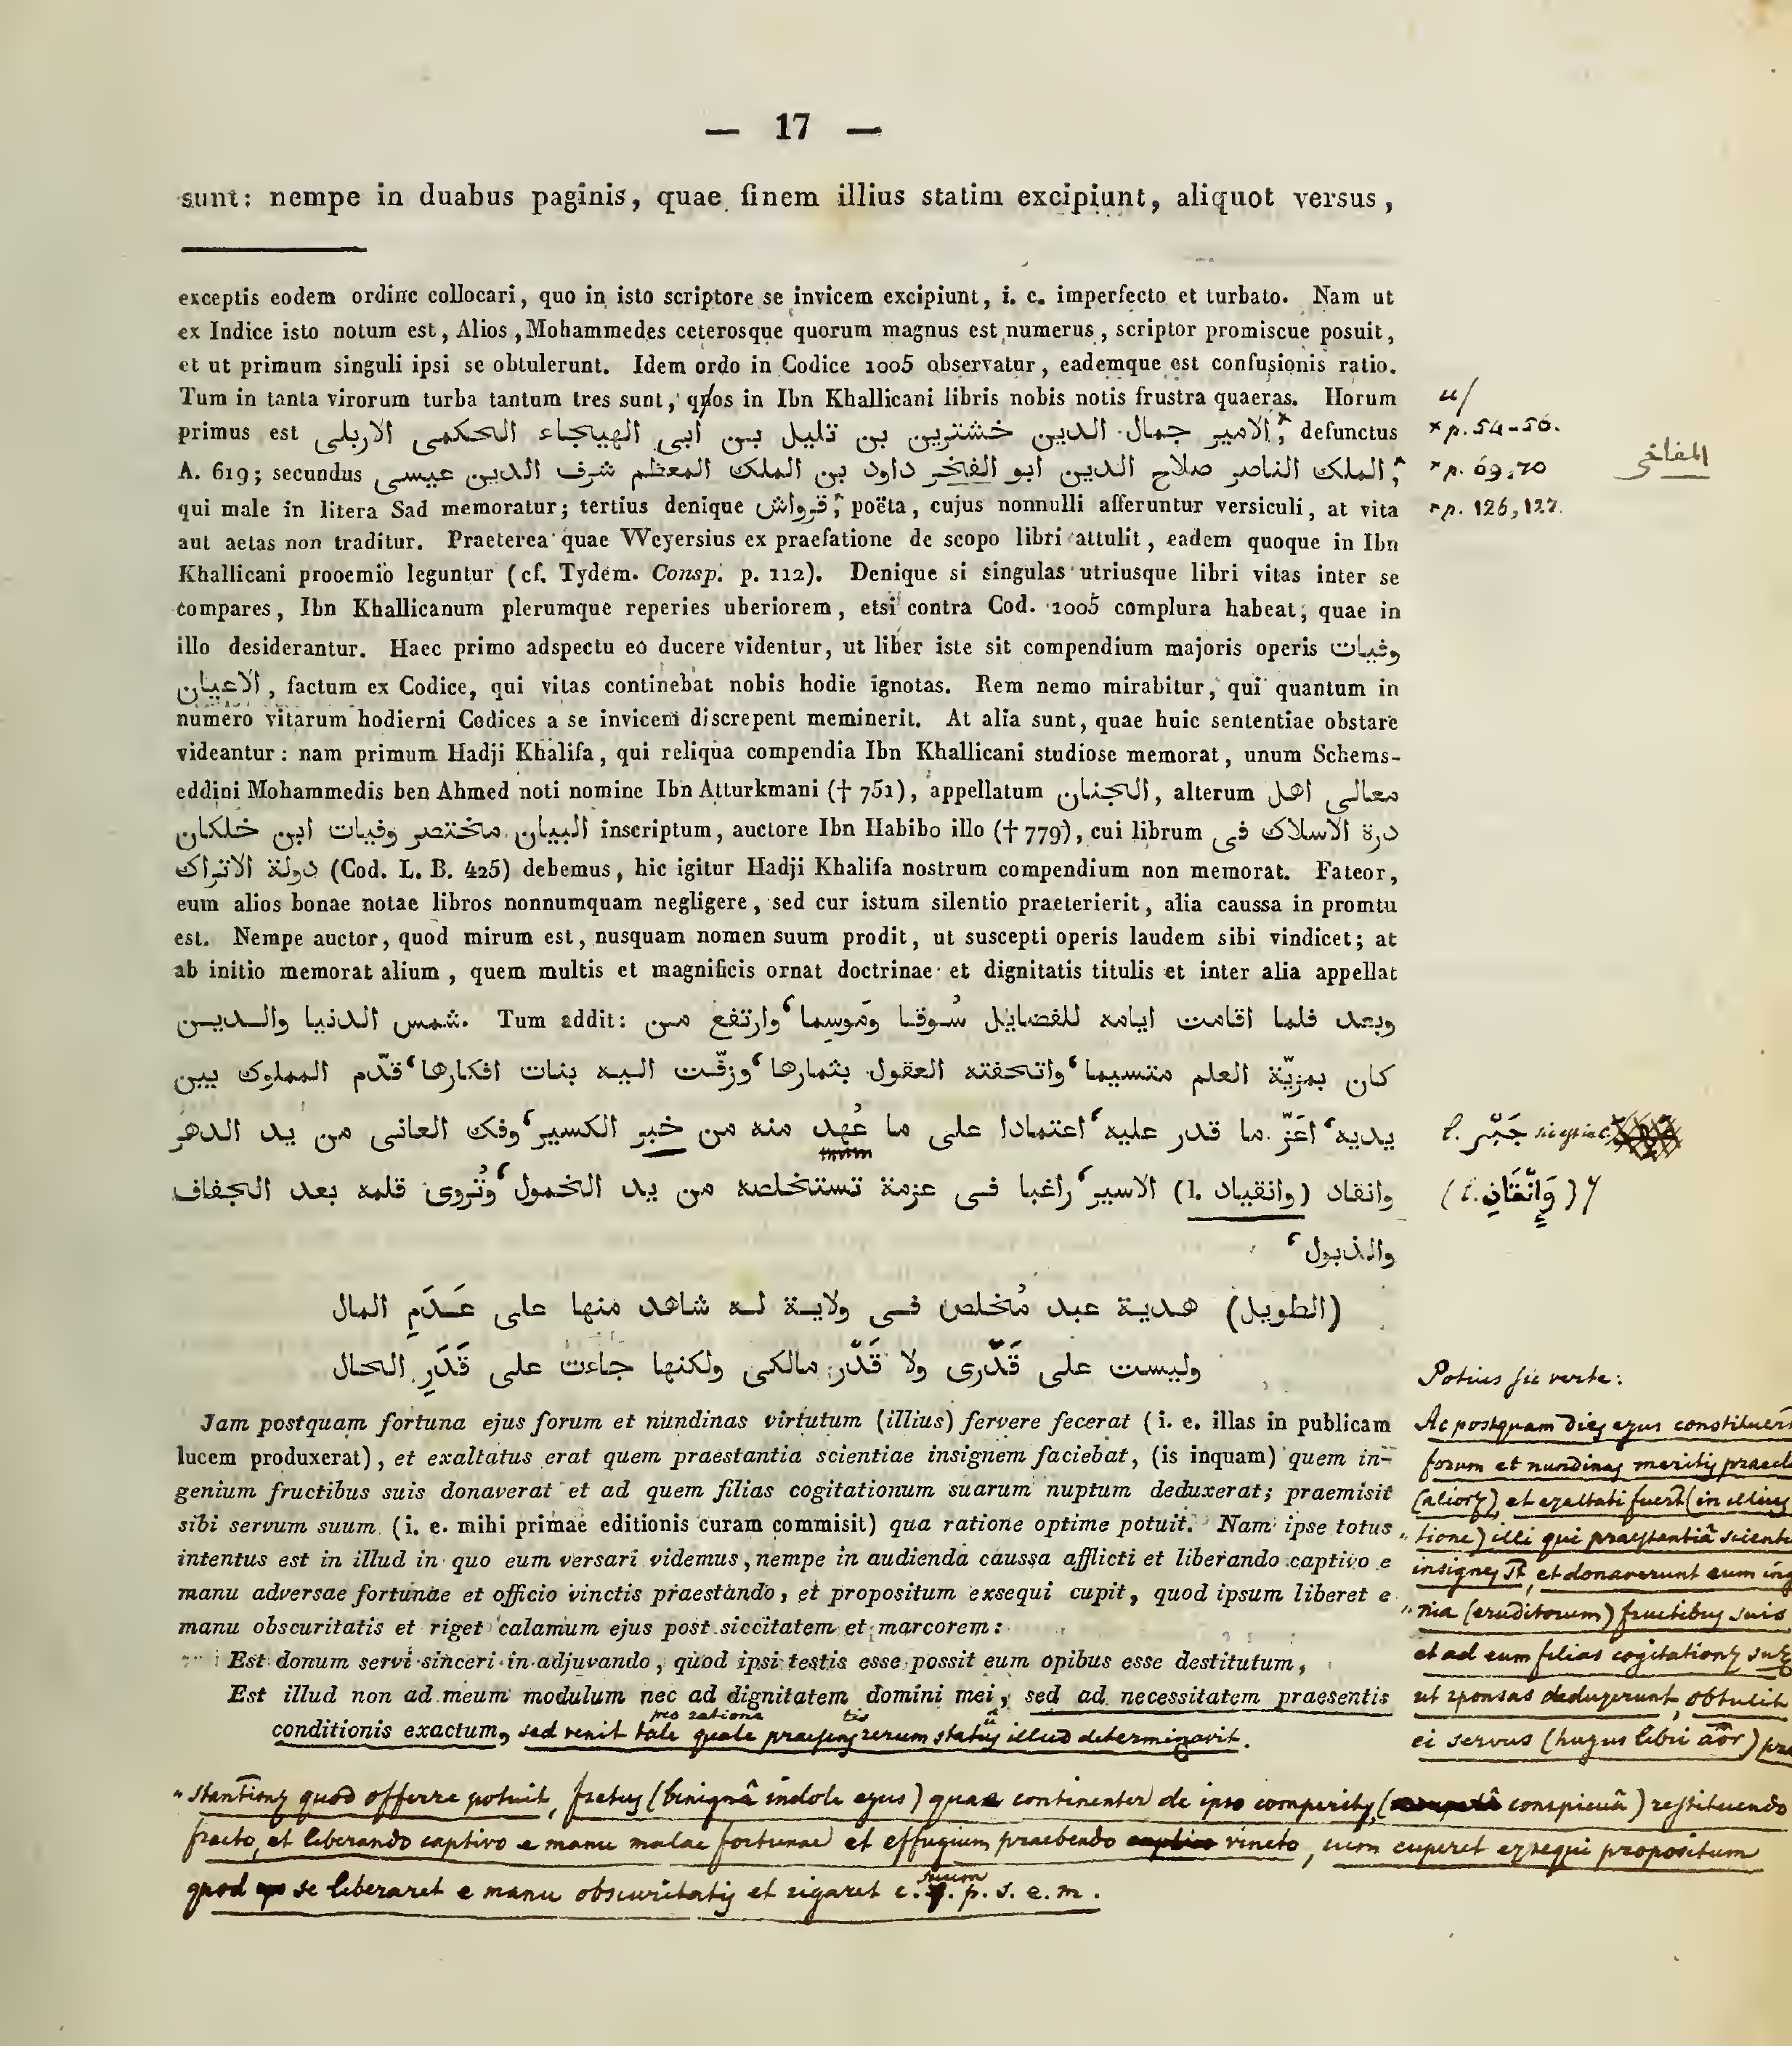 — 17 —
sunt: nempe in duabus paginis, quae finem illius statim excipiunt, aliquot versus,
exceptis eodem ordine collocari, quo in isto scriptore se invicem excipiunt, i. e. imperfecto et turbato. Nam ut
ex Indice isto notum est, Alios, Mohammedes ceterosque quorum magnus est numerus, scriptor promiscue posuit,
et ut primum singuli ipsi se obtulerunt. Idem ordo in Codice 1005 observatur, eademque est confusionis ratio.
Tum in tanta virorum turba tantum tres sunt, qros in Ibn Khallicani libris nobis notis frustra quaeras. Horum u/
primus est الامير جمال الدين خشترين بن تليل بن ابى الهيجاء الحكمى الاربلى, defunctus × p. 54-56.
A. 619; secundus الملك الناصر صلاح الدين ابو الفخر داود بن الملك المعظم شرف الدين عيسى, × p. 69, 70 المفاخر
qui male in litera Sad memoratur; tertius denique قرواش, poëta, cujus nonnulli afferuntur versiculi, at vita × p. 126, 127.
aut aetas non traditur. Praeterea quae Weyersius ex praefatione de scopo libri attulit, eadem quoque in Ibn
Khallicani prooemio leguntur (cf. Tydem. Consp. p. 112). Denique si singulas utriusque libri vitas inter se
compares, Ibn Khallicanum plerumque reperies uberiorem, etsi contra Cod. 1005 complura habeat, quae in
illo desiderantur. Haec primo adspectu eo ducere videntur, ut liber iste sit compendium majoris operis وفيات
الاعيان, factum ex Codice, qui vitas continebat nobis hodie ignotas. Rem nemo mirabitur, qui quantum in
numero vitarum hodierni Codices a se invicem discrepent meminerit. At alia sunt, quae huic sententiae obstare
videantur: nam primum Hadji Khalifa, qui reliqua compendia Ibn Khallicani studiose memorat, unum Schems-
eddini Mohammedis ben Ahmed noti nomine Ibn Atturkmani († 751), appellatum الجنان, alterum معالى اهل
البيان مختصر وفيات ابن خلكان inscriptum, auctore Ibn Habibo illo († 779), cui librum درة الاسلاك فى
دولة الاتراك (Cod. L. B. 425) debemus, hic igitur Hadji Khalifa nostrum compendium non memorat. Fateor,
eum alios bonae notae libros nonnumquam negligere, sed cur istum silentio praeterierit, alia caussa in promtu
est. Nempe auctor, quod mirum est, nusquam nomen suum prodit, ut suscepti operis laudem sibi vindicet; at
ab initio memorat alium, quem multis et magnificis ornat doctrinae et dignitatis titulis et inter alia appellat
شمس الدنيا والدين. Tum addit: وبعد فلما اقامت ايامه للفضايل سُوقا ومَوسِما، وارتفع من
كان بمزيّة العلم متسيما، واتحفته العقول بثمارها، وزفّت اليه بنات افكارها، قدّم المملوك بين
يديه، اعَزّ ما قدر عليه، اعتمادا على ما عُهِد منه من خبر الكسير، وفك العانى من يد الدهر l. جَبْر
وانقاد (وانقياد l.) الاسير، راغبا فى عزمة تستخلصه من يد الخمول، وتُروى قلمه بعد الجفاف (l. وَإِنْقَاذِ)
والذبول،
(الطويل) هدية عبد مُخلص فى ولاية له شاهد منها على عَدَمِ المال
وليست على قَدْرى ولا قَدْر مالكى ولكنها جاءت على قَدَرِ الحال
Jam postquam fortuna ejus forum et nundinas virtutum (illius) fervere fecerat (i. e. illas in publicam
lucem produxerat), et exaltatus erat quem praestantia scientiae insignem faciebat, (is inquam) quem in-
genium fructibus suis donaverat et ad quem filias cogitationum suarum nuptum deduxerat; praemisit
sibi servum suum (i. e. mihi primae editionis curam commisit) qua ratione optime potuit. Nam ipse totus
intentus est in illud in quo eum versari videmus, nempe in audienda caussa afflicti et liberando captivo e
manu adversae fortunae et officio vinctis praestando, et propositum exsequi cupit, quod ipsum liberet e
manu obscuritatis et riget calamum ejus post siccitatem et marcorem:
Est donum servi sinceri in adjuvando, quod ipsi testis esse possit eum opibus esse destitutum,
Est illud non ad meum modulum nec ad dignitatem domini mei, sed ad necessitatem praesentis
conditionis exactum, sed venit tale quale praesens rerum status illud determinavit.
pro ratione
Potius sic verte:
Ac postquam dies ejus constituerunt
forum et nundinas meritis praecl
(alior), et exaltati fuerunt (in illius
tione) illi qui praestantiâ scienti
insignes st, et donaverunt eum ing
nia (eruditorum) fructibus suis
et ad eum filias cogitationum sua
ut sponsas deduxerunt, obtulit
ei servus (hujus libri auctor) pra
stantiam quod offerre potuit, fretus (benignâ indole ejus) quae continenter de ipso comperitur, (conspicuâ) restituendo
fracto, et liberando captivo e manu malae fortunae et effugium praebendo vincto, cum cuperet exsequi propositum
quod se liberaret e manu obscuritatis et rigaret c. suum p. s. e. m.